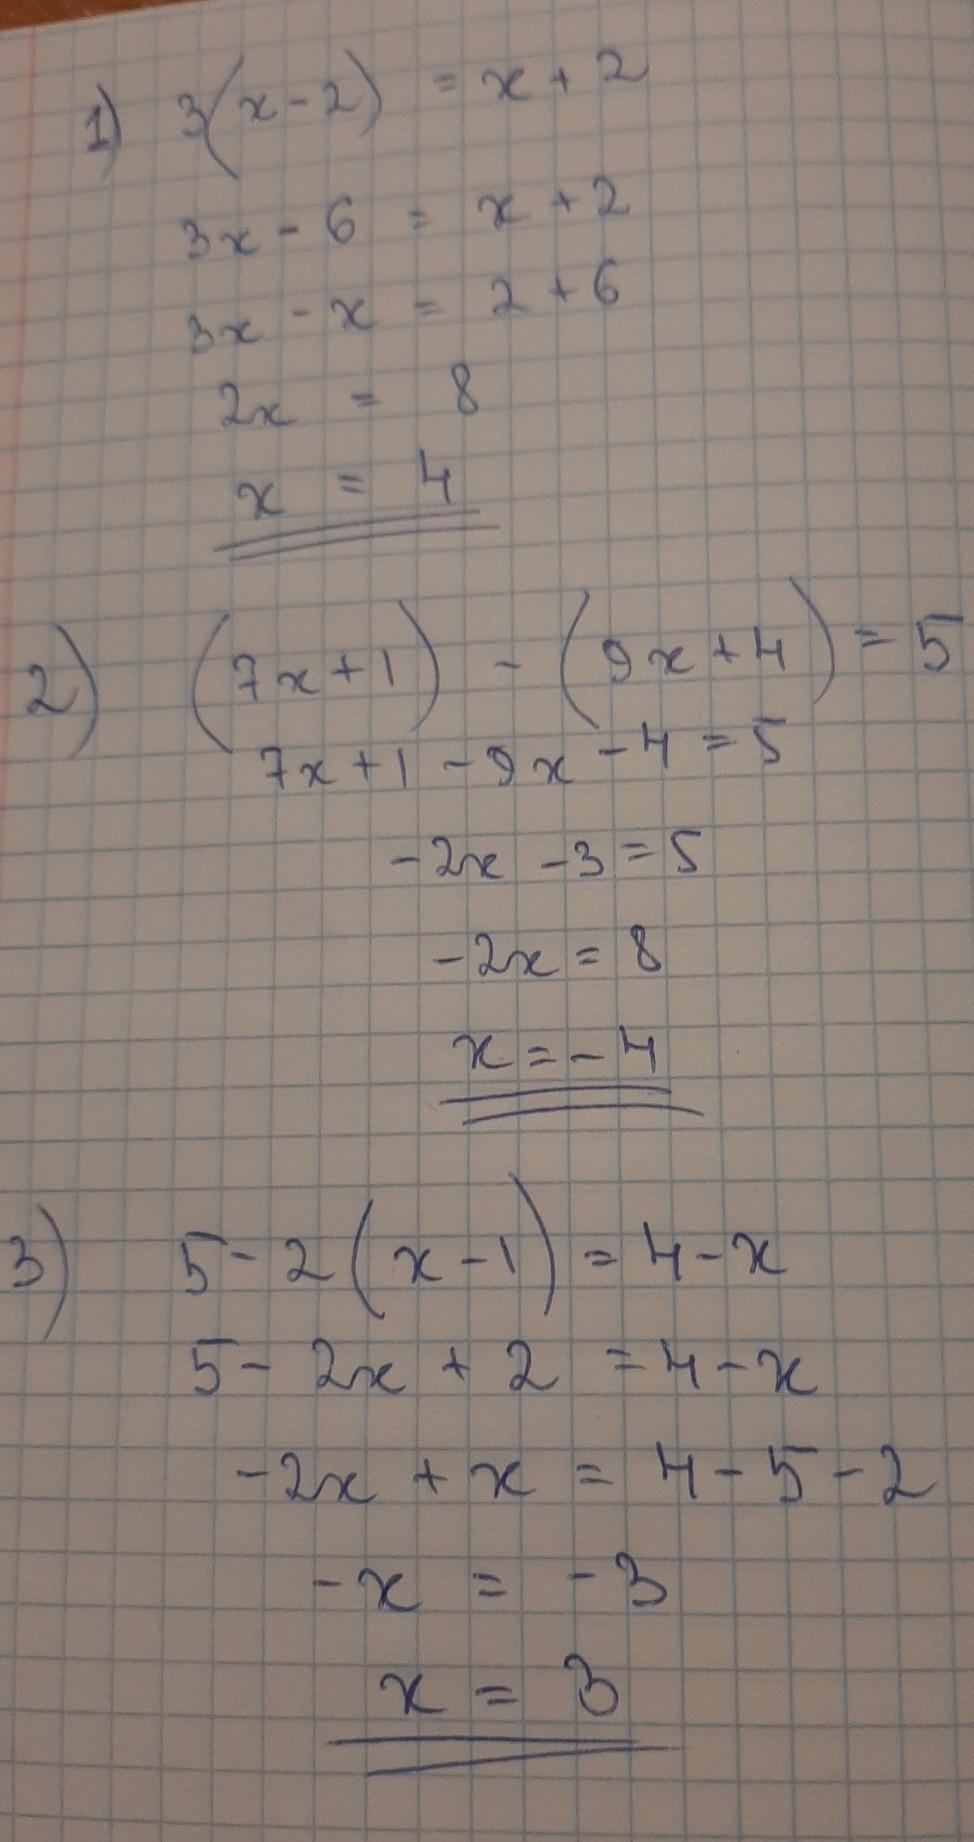 1) 3(x-2) = x+2
3x-6 = x+2
3x-x = 2+6
2x = 8
x = 4
2) (7x+1) - (9x+4) = 5
7x+1-9x-4=5
-2x-3=5
-2x=8
x=-4
3) 5-2(x-1)=4-x
5-2x+2=4-x
-2x+x=4-5-2
-x = -3
x = 3